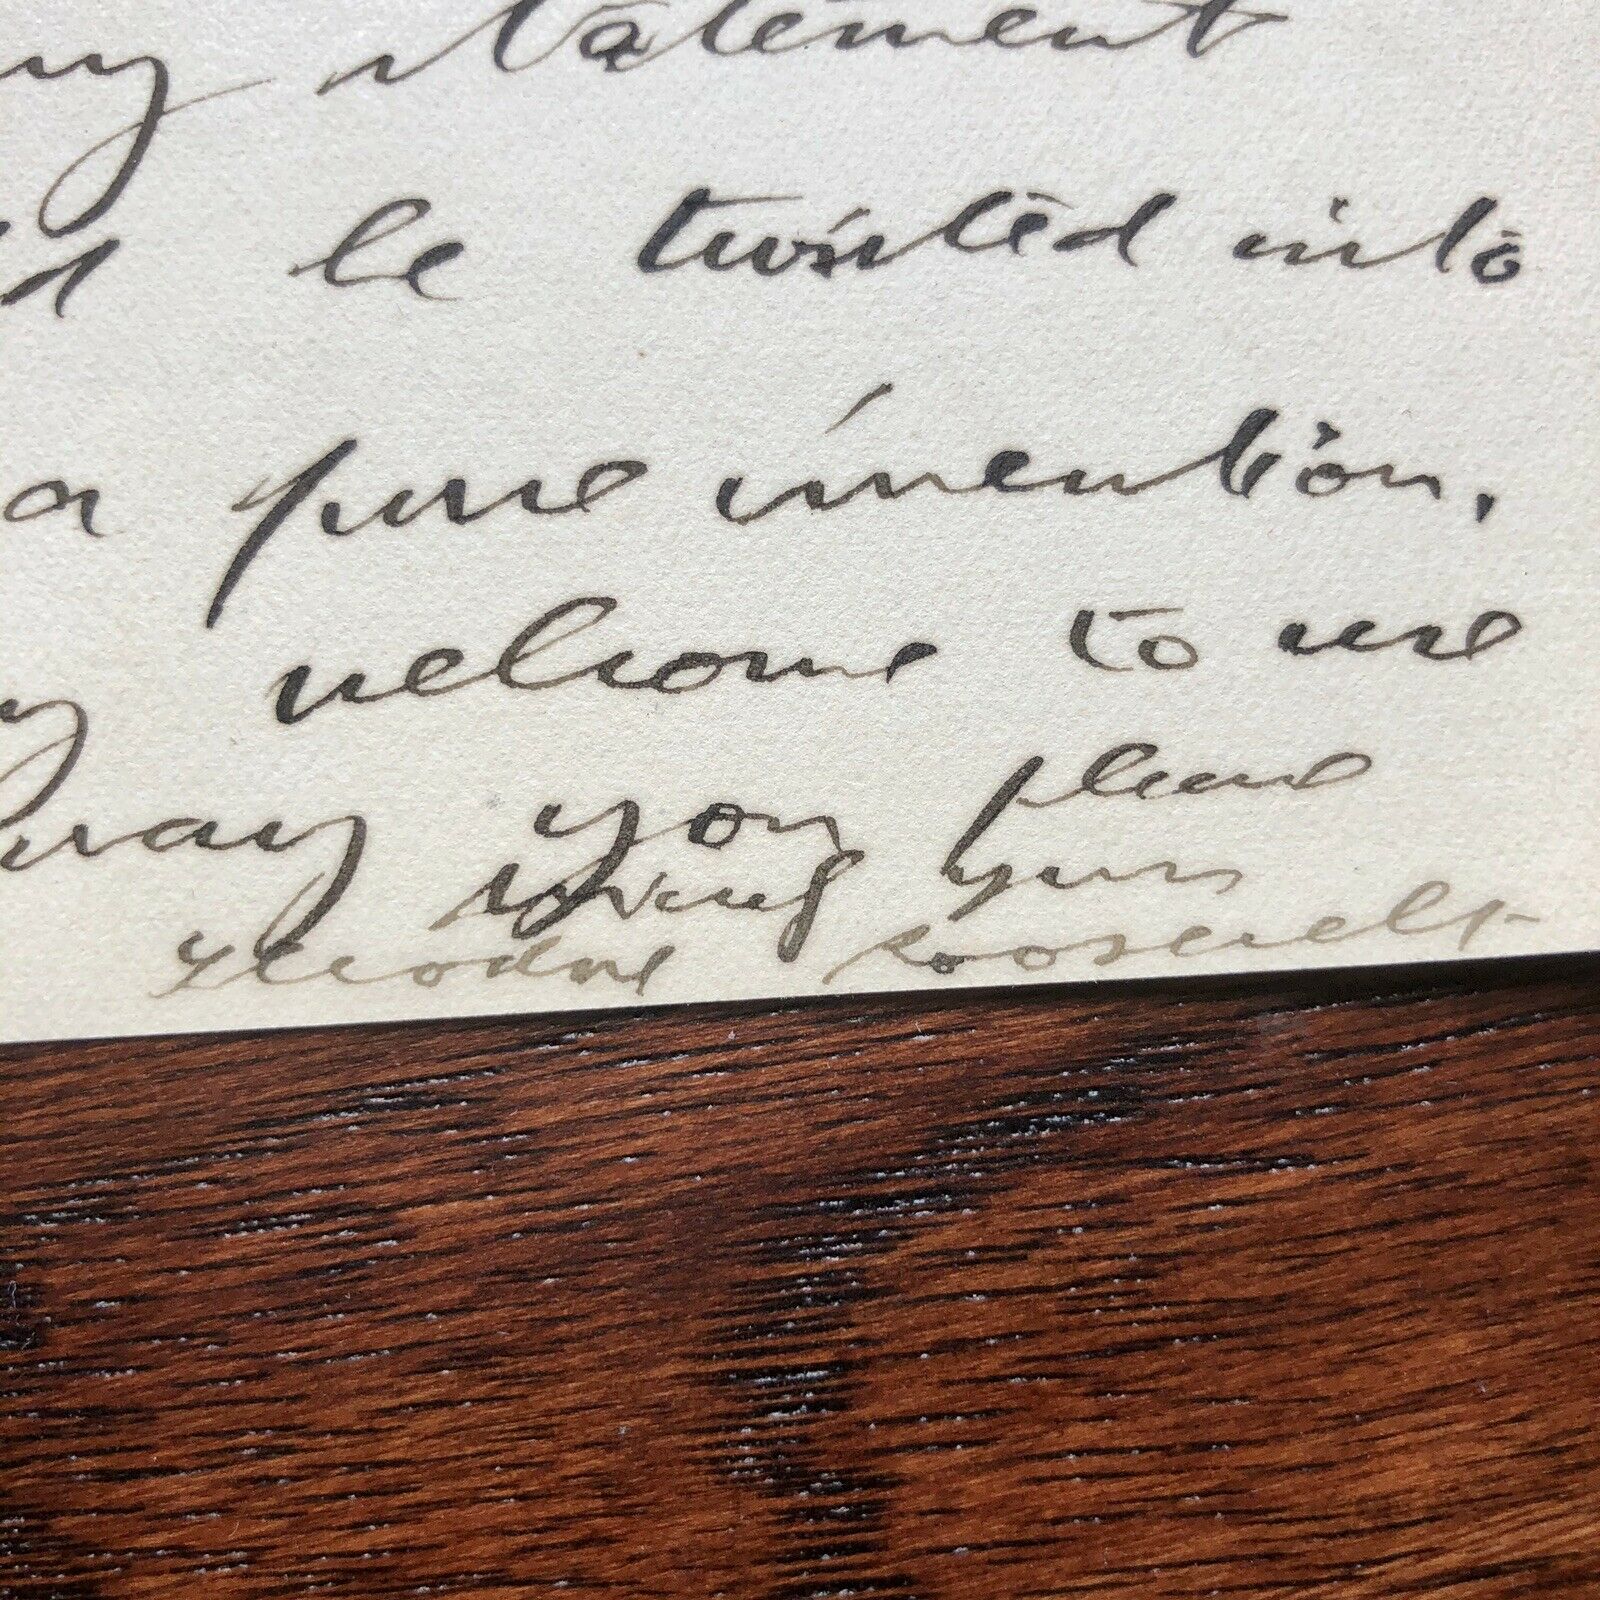 statement
be twisted into
a pure invention.
welcome to use
way you please
yours
Theodore Roosevelt